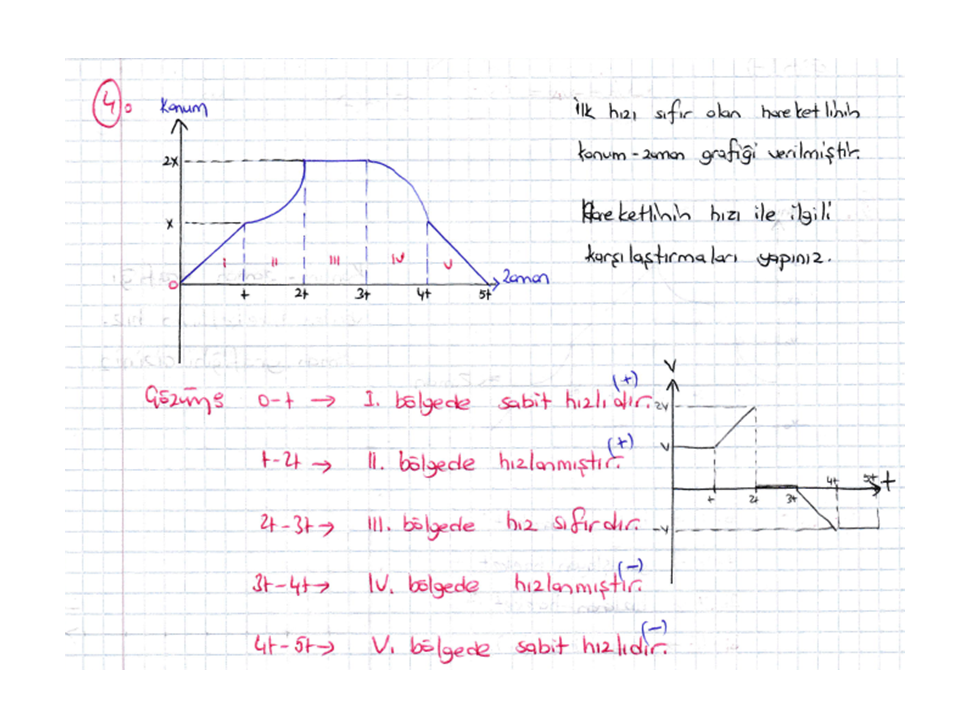 4.
Konum
2x
x
0
I II III IV V
t 2t 3t 4t 5t
Zaman
İlk hızı sıfır olan hareketlinin
konum-zaman grafiği verilmiştir.
Hareketlinin hızı ile ilgili
karşılaştırmaları yapınız.
Çözüm: 0-t → I. bölgede sabit hızlıdır. (+)
t-2t → II. bölgede hızlanmıştır. (+)
2t-3t → III. bölgede hız sıfırdır.
3t-4t → IV. bölgede hızlanmıştır. (-)
4t-5t → V. bölgede sabit hızlıdır. (-)
V
2v
v
-v
t 2t 3t 4t 5t
t